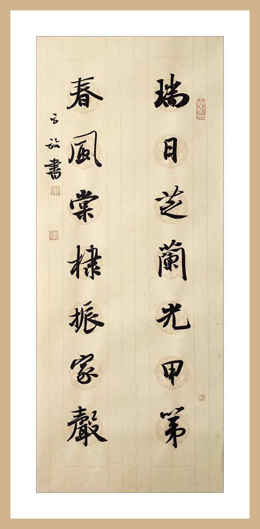 瑞日芝蘭光甲第
春風棠棣振家聲